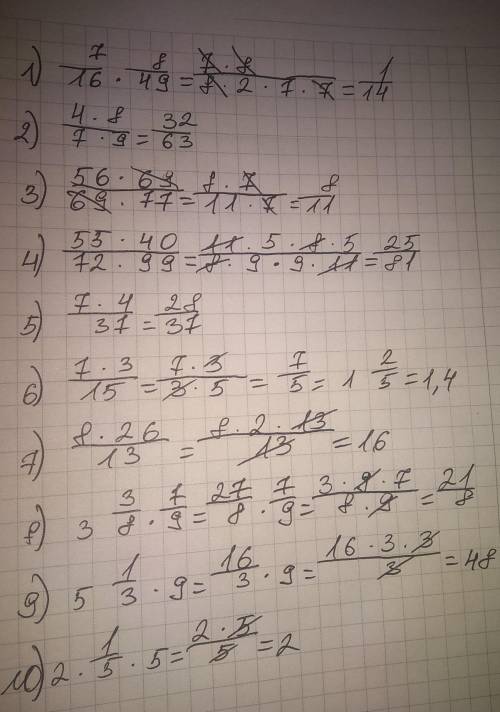 1) 7/16 · 8/49 = 7 · 8/8 · 2 · 7 · 7 = 1/14
2) 4 · 8/7 · 9 = 32/63
3) 56 · 69/69 · 77 = 8 · 7/11 · 7 = 8/11
4) 55 · 40/72 · 99 = 11 · 5 · 8 · 5/8 · 9 · 9 · 11 = 25/81
5) 7 · 4/37 = 28/37
6) 7 · 3/15 = 7 · 3/3 · 5 = 7/5 = 1 2/5 = 1,4
7) 8 · 26/13 = 8 · 2 · 13/13 = 16
8) 3 3/8 · 7/9 = 27/8 · 7/9 = 3 · 9 · 7/8 · 9 = 21/8
9) 5 1/3 · 9 = 16/3 · 9 = 16 · 3 · 3/3 = 48
10) 2 · 1/5 · 5 = 2 · 5/5 = 2